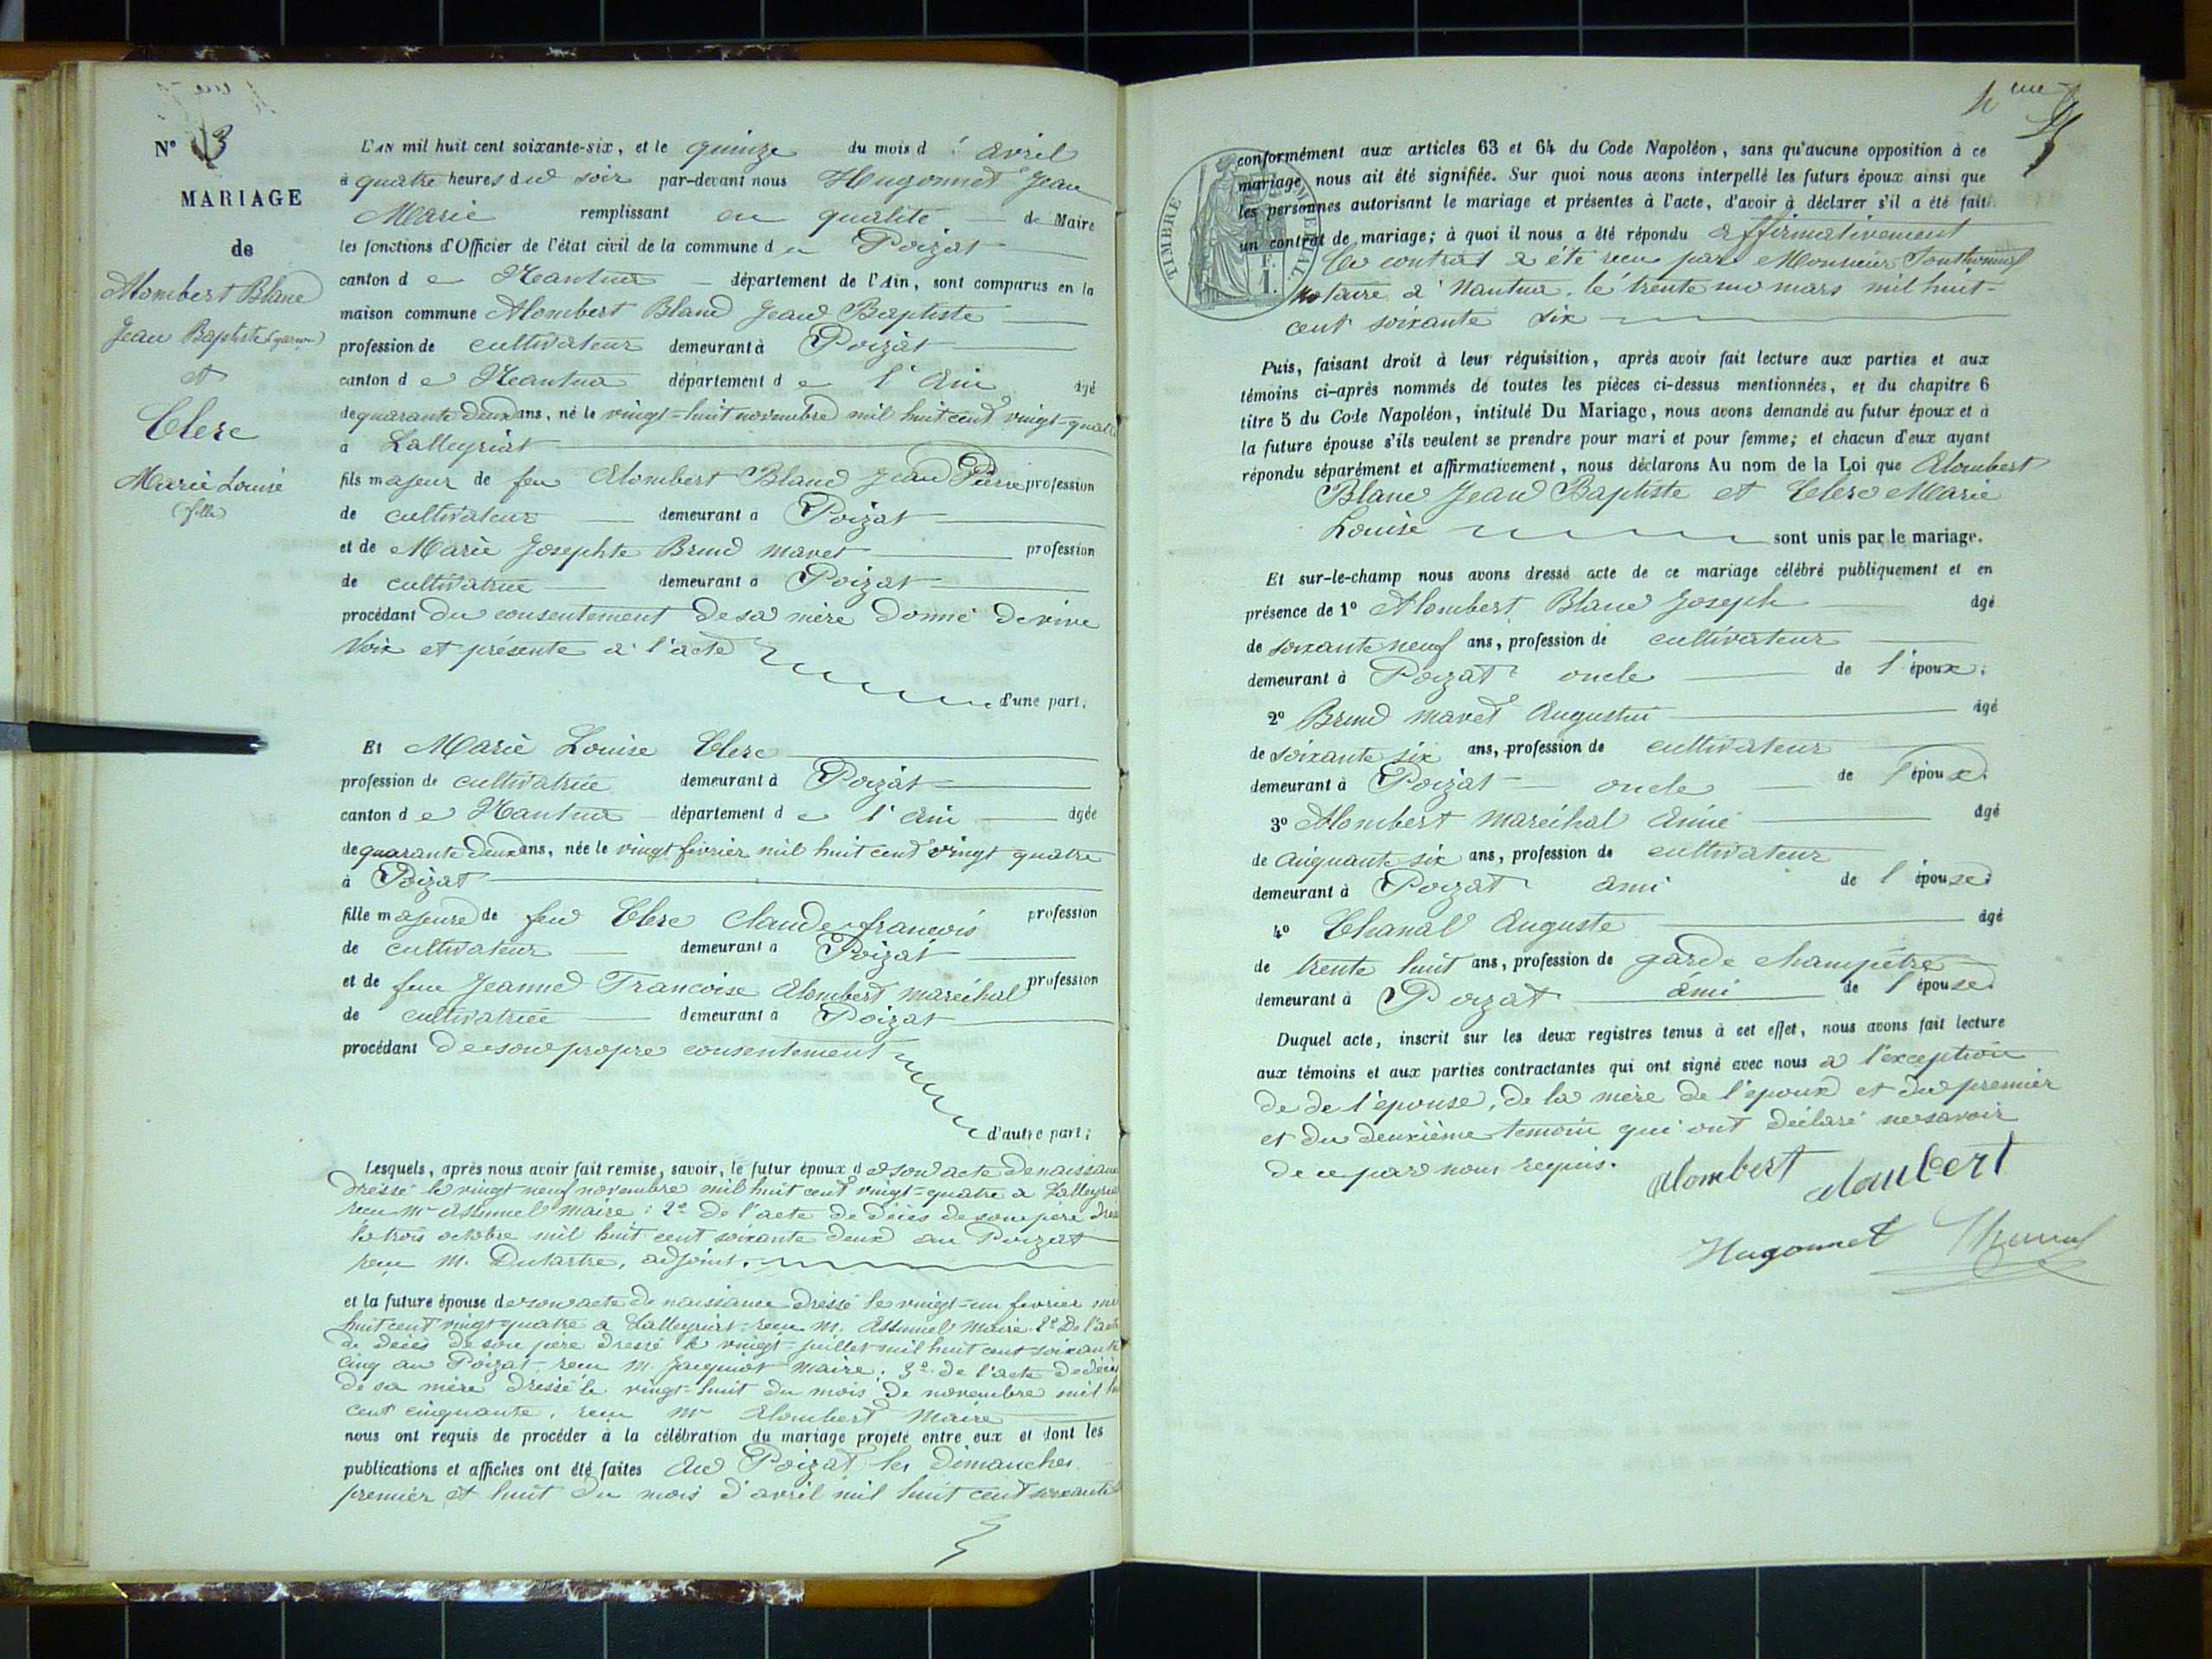 N° 3
MARIAGE
de
Alombert Blanc
Jean Baptiste (garçon)
et
Clerc
Marie Louise
(fille)
L'AN mil huit cent soixante-six, et le quinze du mois d' avril
à quatre heures du soir par-devant nous Hugonnet Jean
Marie remplissant en qualité de Maire
les fonctions d'Officier de l'état civil de la commune d u Poizat
canton d e Nantua département de l'Ain, sont comparus en la
maison commune Alombert Blanc Jean Baptiste
profession de cultivateur demeurant à Poizat
canton d e Nantua département d e l'Ain âgé
de quarante deux ans, né le vingt-huit novembre mil huit cent vingt-quatre
à Lalleyriat
fils majeur de feu Alombert Blanc Jean Pierre profession
de cultivateur demeurant à Poizat
et de Marie Josephte Brund mavet profession
de cultivatrice demeurant à Poizat
procédant du consentement de sa mère donné de vive
voix et présente à l'acte
d'une part.
Et Marie Louise Clerc
profession de cultivatrice demeurant à Poizat
canton d e Nantua département d e l'Ain âgée
de quarante deux ans, née le vingt février mil huit cent vingt quatre
à Poizat
fille majeure de feu Clerc Claude françois profession
de cultivateur demeurant à Poizat
et de feue Jeanne Francoise Alombert maréchal profession
de cultivatrice demeurant à Poizat
procédant de son propre consentement
d'autre part;
Lesquels, après nous avoir fait remise, savoir, le futur époux d e son acte de naissance
dressé le vingt neuf novembre mil huit cent vingt-quatre a Lalleyriat
recu Mr Assumel maire; 2° de l'acte de décès de son père
le trois octobre mil huit cent soixante deux au Poizat
recu M. Dutartre, adjoint.
et la future épouse de son acte de naissance dressé le vingt-un fevrier mil
huit cent vingt-quatre a Lalleyriat recu M. Assumel maire. 2° De l'acte
de décès de son père dressé le vingt-juillet mil huit cent soixante
cinq au Poizat recu M. Jacquiot maire; 3° de l'acte de décès
de sa mère dressé le vingt-huit du mois de novembre mil
cent cinquante, recu Mr Alombert Maire
nous ont requis de procéder à la célébration du mariage projeté entre eux et dont les
publications et affiches ont été faites au Poizat les dimanches
premier et huit du mois d'avril mil huit cent soixante
TIMBRE IMPERIAL
1 F.
conformément aux articles 63 et 64 du Code Napoléon, sans qu'aucune opposition à ce
mariage nous ait été signifiée. Sur quoi nous avons interpellé les futurs époux ainsi que
les personnes autorisant le mariage et présentes à l'acte, d'avoir à déclarer s'il a été fait
un contrat de mariage; à quoi il nous a été répondu affirmativement
Ce contrat a été recu par Monsieur
notaire à Nantua, le trente un mars mil huit-
cent soixante six
Puis, faisant droit à leur réquisition, après avoir fait lecture aux parties et aux
témoins ci-après nommés de toutes les pièces ci-dessus mentionnées, et du chapitre 6
titre 5 du Code Napoléon, intitulé Du Mariage, nous avons demandé au futur époux et à
la future épouse s'ils veulent se prendre pour mari et pour femme; et chacun d'eux ayant
répondu séparément et affirmativement, nous déclarons Au nom de la Loi que Alombert
Blanc Jean Baptiste et Clerc Marie
Louise sont unis par le mariage.
Et sur-le-champ nous avons dressé acte de ce mariage célébré publiquement et en
présence de 1° Alombert Blanc Joseph âgé
de soixante neuf ans, profession de cultivateur
demeurant à Poizat oncle de l'époux.
2° Brund mavet Augustin âgé
de soixante six ans, profession de cultivateur
demeurant à Poizat oncle de l'époux.
3° Alombert maréchal Aimé âgé
de cinquante six ans, profession de cultivateur
demeurant à Poizat ami de l'épouse
4° Chanal Auguste âgé
de trente huit ans, profession de garde champêtre
demeurant à Poizat ami de l'épouse
Duquel acte, inscrit sur les deux registres tenus à cet effet, nous avons fait lecture
aux témoins et aux parties contractantes qui ont signé avec nous à l'exception
de de l'épouse, de la mère de l'époux et du premier
et du deuxième temoin qui ont déclaré ne savoir
de ce par nous requis.
Alombert alaubert
Hugonnet Chanal